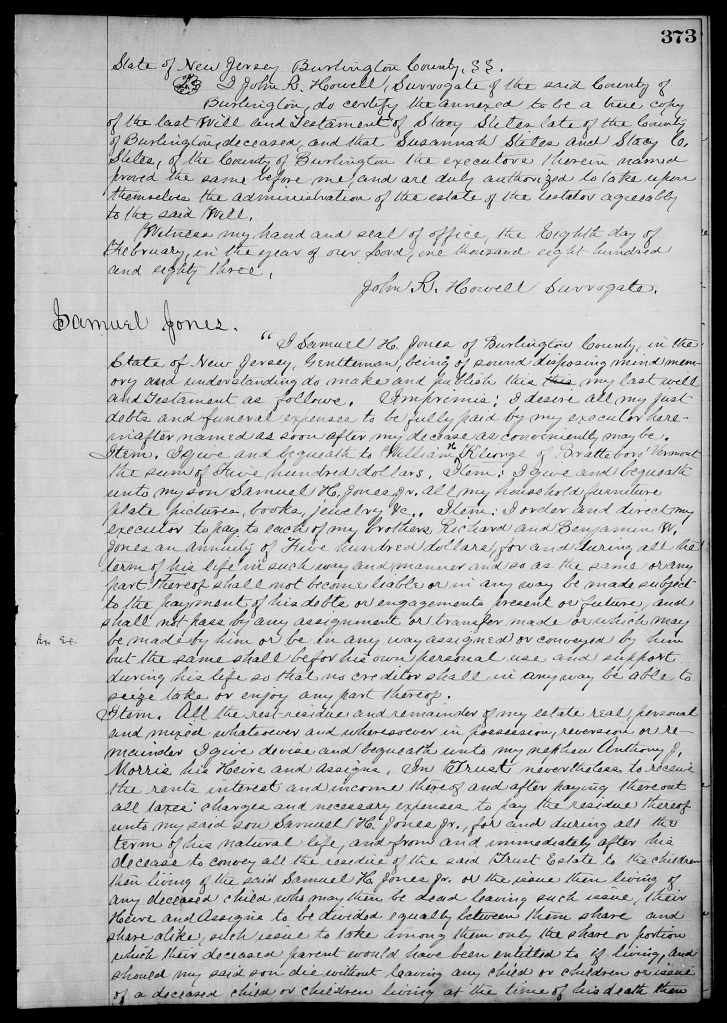 373
State of New Jersey Burlington County, SS.
L.S. I John R. Howell, Surrogate of the said County of
Burlington, do certify the annexed to be a true copy
of the last Will and Testament of Stacy Stiles late of the County
of Burlington, deceased, and that Susannah Stiles and Stacy C.
Stiles, of the County of Burlington the executors therein named
proved the same before me, and are duly authorized to take upon
themselves the administration of the estate of the testator agreeably
to the said Will.
Witness my hand and seal of office, the Eighth day of
February, in the year of our Lord, one thousand eight hundred
and eighty three.
John R. Howell Surrogate.
Samuel Jones.
"I Samuel H. Jones of Burlington County, in the
State of New Jersey, Gentleman, being of sound disposing mind mem-
ory and understanding do make and publish this this my last will
and Testament as follows. Imprimis: I desire all my just
debts and funeral expenses to be fully paid by my executor here-
inafter named as soon after my decease as conveniently may be.
Item. I give and bequeath to William H of Brattleboro Vermont
the sum of Five hundred dollars. Item: I give and bequeath
unto my son Samuel H. Jones Jr. all my household furniture
plate pictures, books, jewelry &c., Item: I order and direct my
executor to pay to each of my brothers Richard and Benjamin W.
Jones an annuity of Five hundred dollars, for and during all the
term of his life in such way and manner and so as the same or any
part thereof shall not become leable or in any way be made subject
to the payment of his debts or engagements present or future, and
shall not pass by any assignment or transfer made or which may
be made by him or be in any way assigned or conveyed by him
but the same shall be for his own personal use and support
during his life so that no creditor shall in any way be able to
seize take or enjoy any part thereof.
Item. All the rest residue and remainder of my estate real, personal
and mixed whatsoever and wheresoever in possession, reversion or re-
mainder I give devise and bequeath unto my nephew Anthony J.
Morris his Heirs and Assigns, In Trust nevertheless to receive
the rents interest and income thereof and after paying thereout
all taxes: charges and necessary expenses to pay the residue thereof
unto my said son Samuel H. Jones Jr., for and during all the
term of his natural life, and from and immediately after his
decease to convey all the residue of the said Trust Estate to the children
then living of the said Samuel H. Jones Jr. or the issue then living of
any deceased child who may then be dead leaving such issue, their
Heirs and Assigns to be divided equally between them share and
share alike, such issue to take among them only the share or portion
which their deceased parent would have been entitled to if living, and
should my said son die without leaving any child or children or issue
of a deceased child or children living at the time of his death then